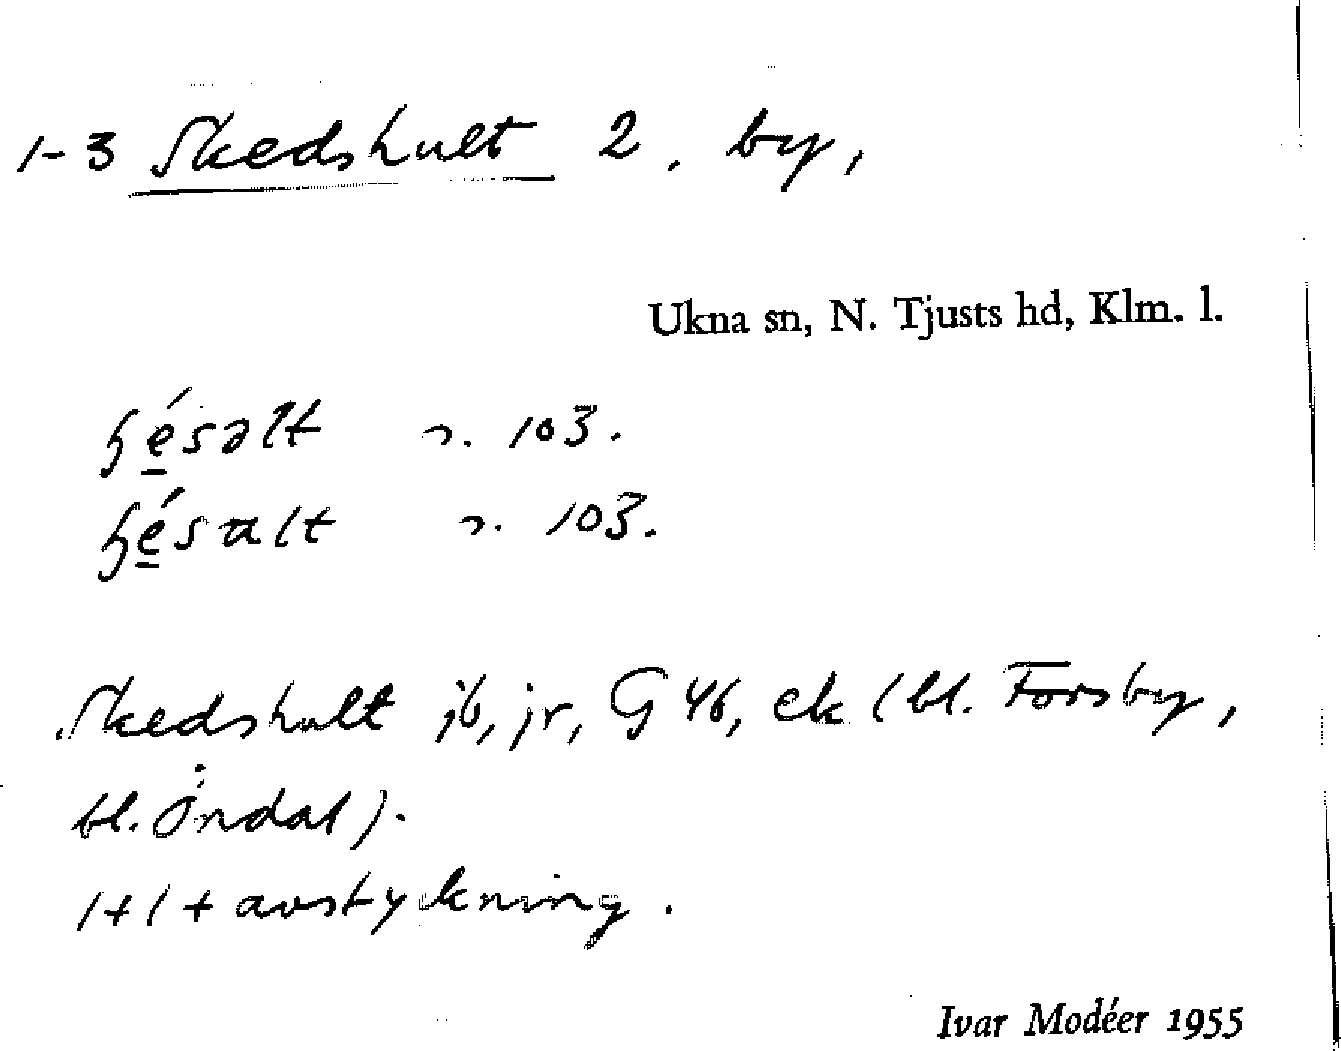 1-3 Skedshult 2, by,
Ukna sn, N. Tjusts hd, Klm. l.
ɧé̠səlt s. 103.
ɧé̠salt s. 103.
Skedshult jb, jr, G 46, ek (bl. Forsby,
bl. Öndal).
1+1+ avstyckning.
Ivar Modéer 1955